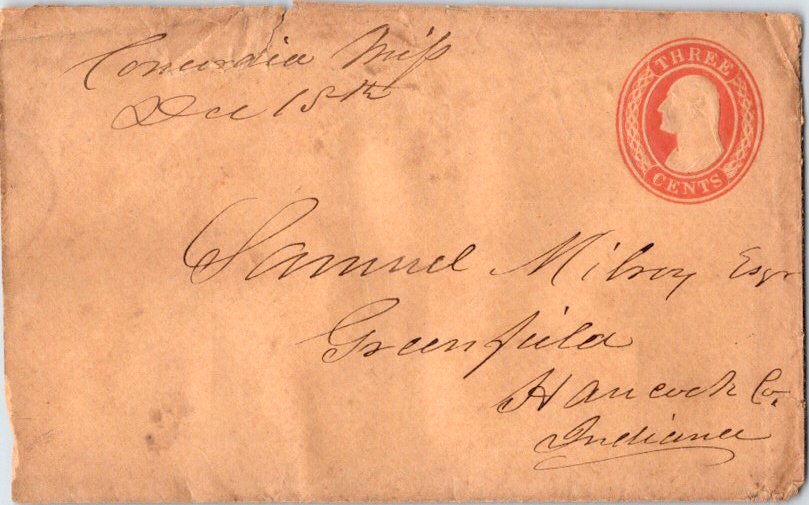 Concordia Miss
Dec 15th
THREE
CENTS
Samuel Milroy Esqr
Greenfield
Hancock Co.
Indiana